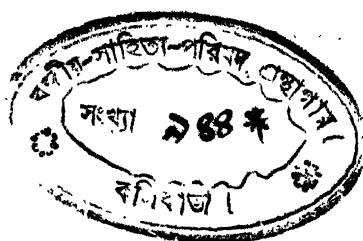 বঙ্গীয়-সাহিত্য-পরিষদ্ গ্রন্থাগার।
সংখ্যা ৯৪৪
কলিকাতা।